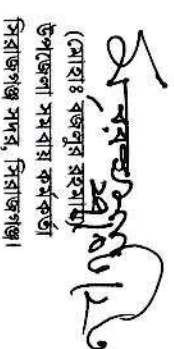 (মোঃ বজলুর রহমান)
উপজেলা সমবায় কর্মকর্তা
সিরাজগঞ্জ সদর, সিরাজগঞ্জ।